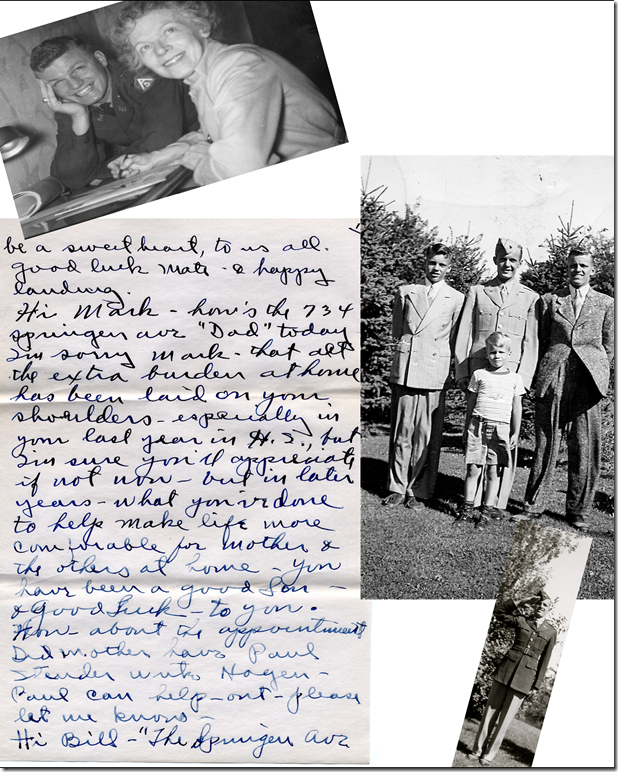 be a sweet heart, to us all.
Good luck Mate - & happy
landing.
Hi Mark - how's the 734
Springen ave "Dad" today
I'm sorry Mark - that all
the extra burden at home
has been laid on your
shoulders - especially in
your last year in H.S., but
I'm sure you'll appreciate
if not now - but in later
years - what you've done
to help make life more
comforable for Mother &
the others at home - you
have been a good Son -
& Good Luck - to you.
How about the appointment
Did mother have Paul
write Hagen -
Paul can help - out - please
let me know -
Hi Bill - "The Springen Ave